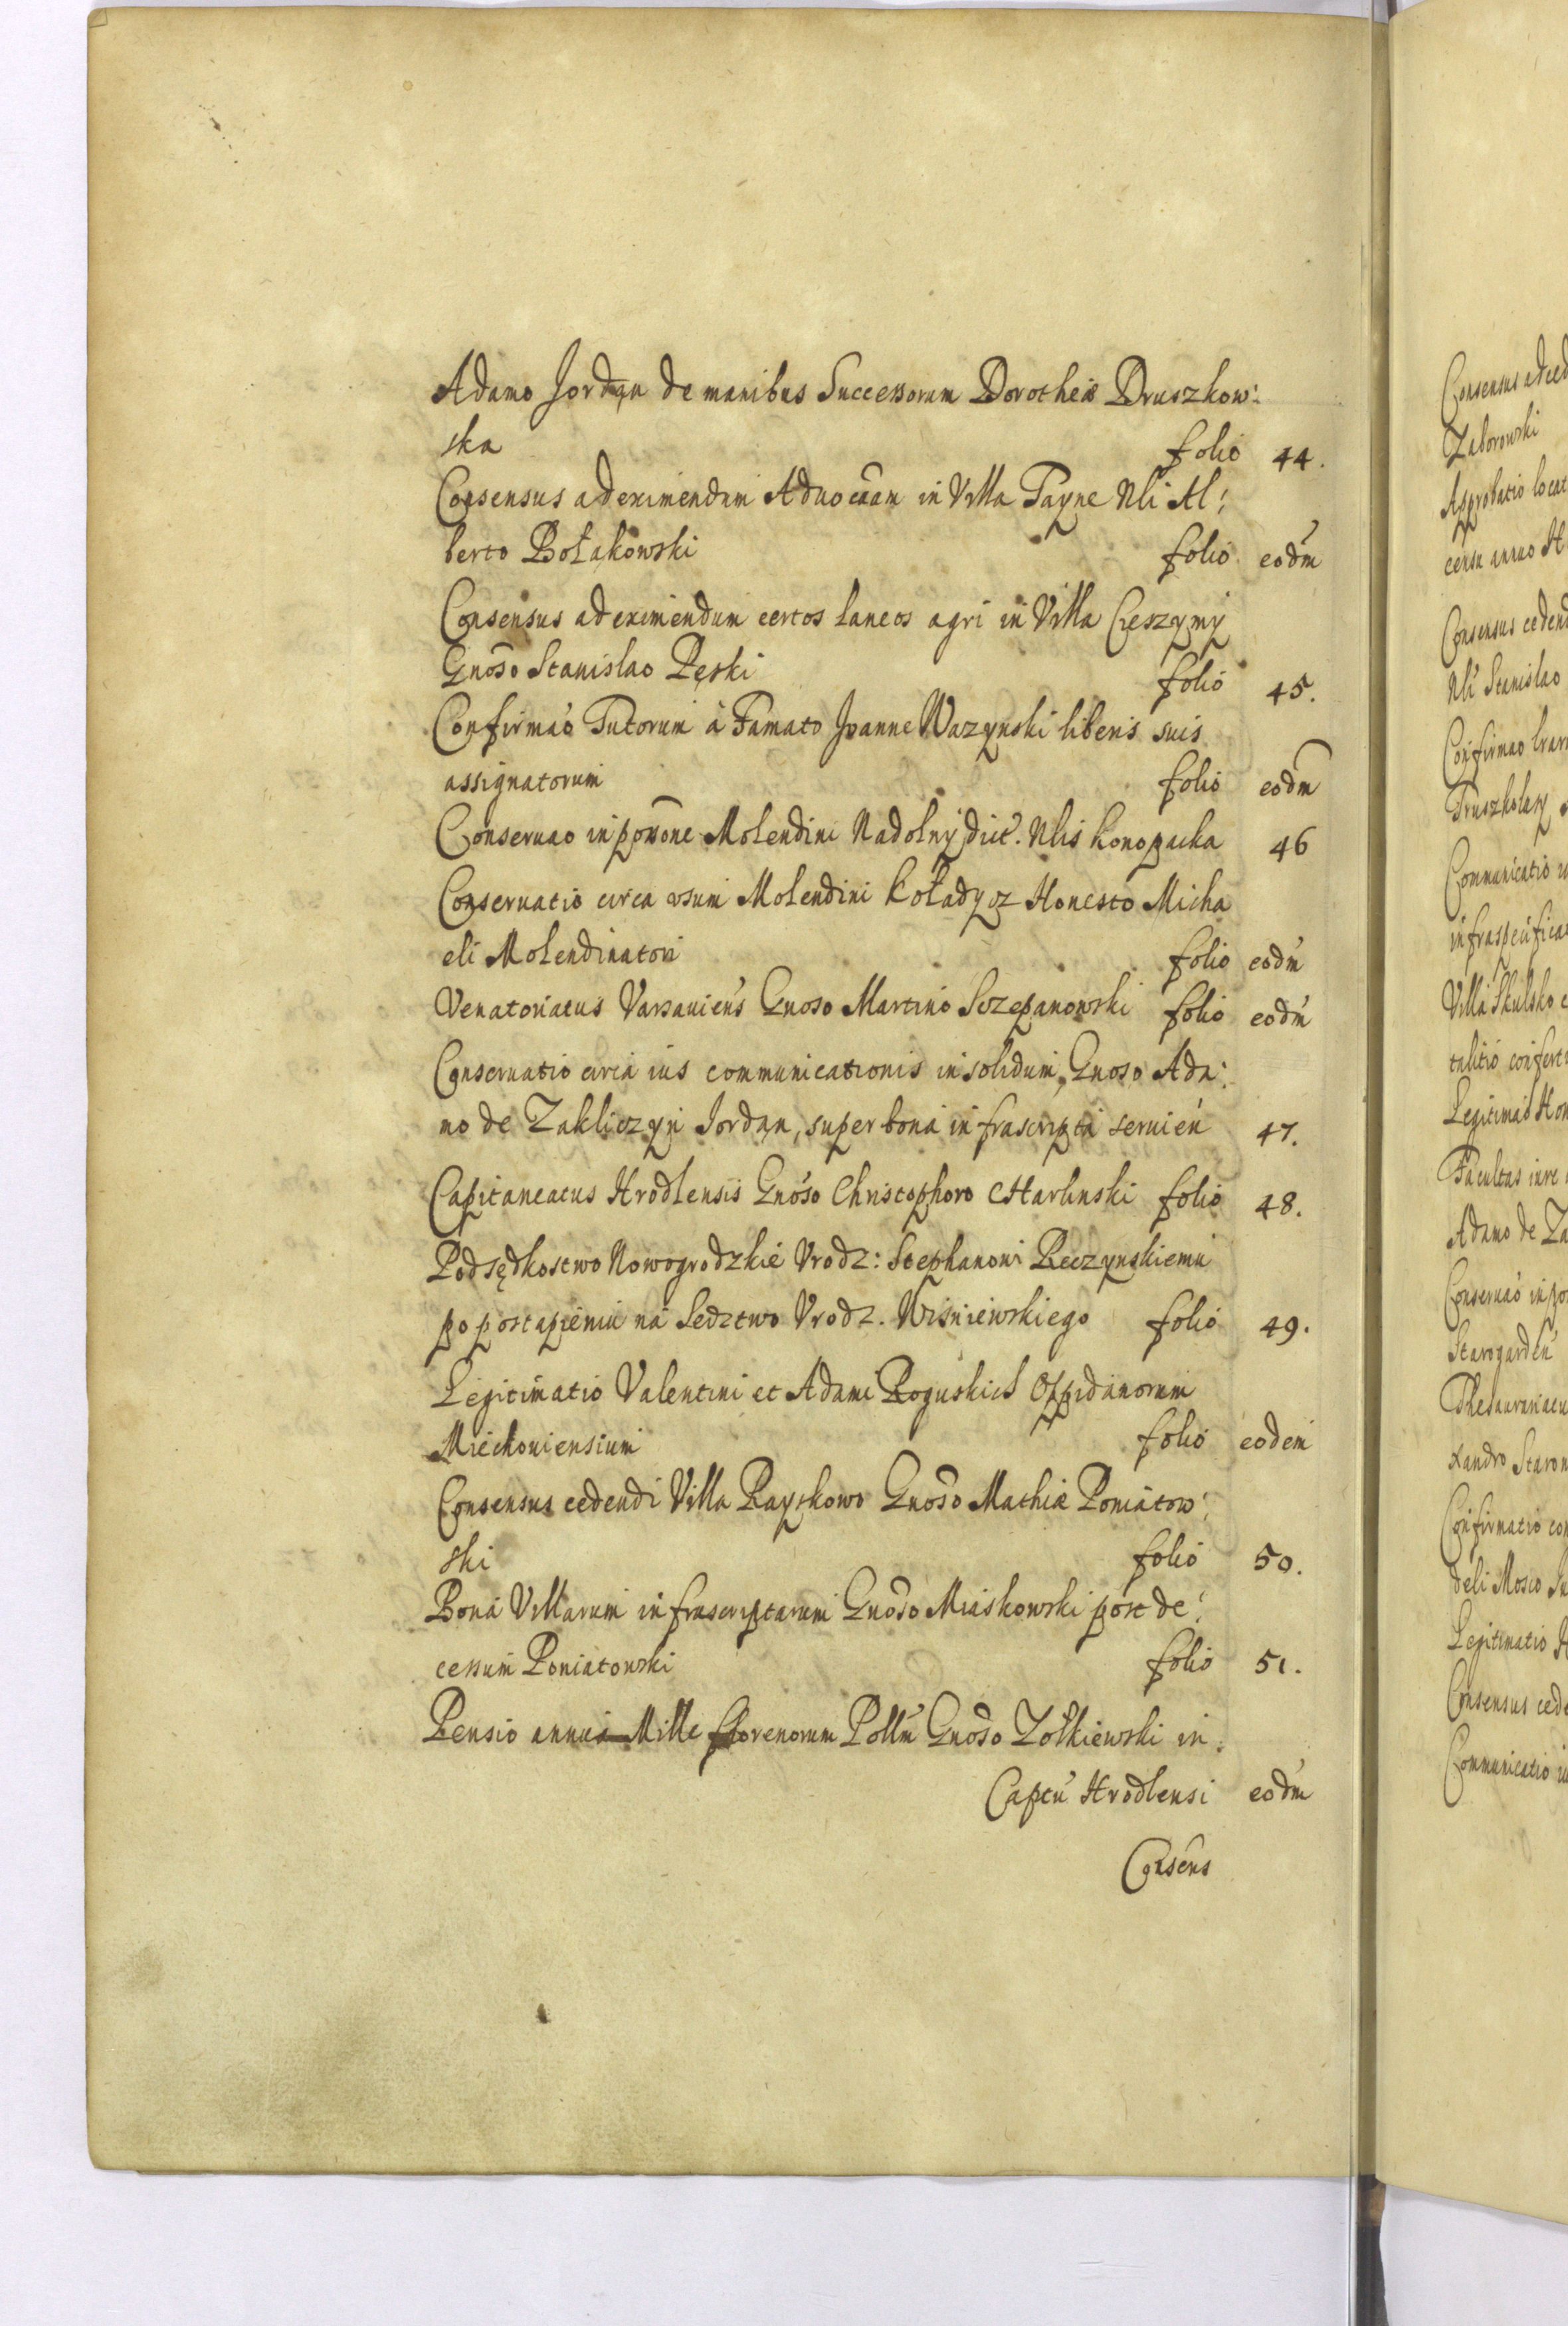 Adamo Jordan de manibus Successorum Dorotheæ Druszkow:
ska folio 44.
Consensus ad eximendum Aduocãam in Villa Tayne Nli Al:
berto Bołakowski folio eodm
Consensus ad eximendum certos laneos agri in Villa Cieszymy
Gnoso Stanislao Pęski folio 45.
Confirmao Tutorum à Famato Joanne Wazynski liberis suis
assignatorum folio eodm
Conseruao in possone Molendini Nadolny dict. Nlis Konopacka 46
Conseruatio circa vsum Molendini Koładycz Honesto Micha
eli Molendinatori folio eodm
Venatoriatus Varsauiens Gnoso Martino Sczepanowski folio eodm
Conseruatio circa ius communicationis in solidum, Gnoso Ada:
mo de Zakliczyn Jordan, super bona infrascripta seruien 47.
Capitaneatus Hrodlensis Gnoso Christophoro Charlinski folio 48.
Podsędkostwo Nowogrodzkie Vrodz: Stephanowi Reczynskiemu
po postąpieniu na Sedztwo Vrodz. Wiśniewskiego folio 49.
Legitimatio Valentini et Adami Roguskich Oppidanorum
Miechouiensium folio eodem
Consensus cedendi Villa Rayskowo Gnoso Mathiæ Poniatow:
ski folio 50.
Bona Villarum infrascriptarum Gnoso Miaskowski post de:
cessum Poniatowski folio 51.
Pensio annua Mille florenorum Pollm Gnoso Zołkiewski in
Captu Hrodlensi eodm
Consens
Zaborowski
Approbatio locat
censu annuo H
Consensus cedend
Nli Stanislao
Communicatio
Villa Skulsko
Facultas
Adamo de Za
Starogarden
Confirmatio con
Legitimatio
Consensus cede
Communicatio